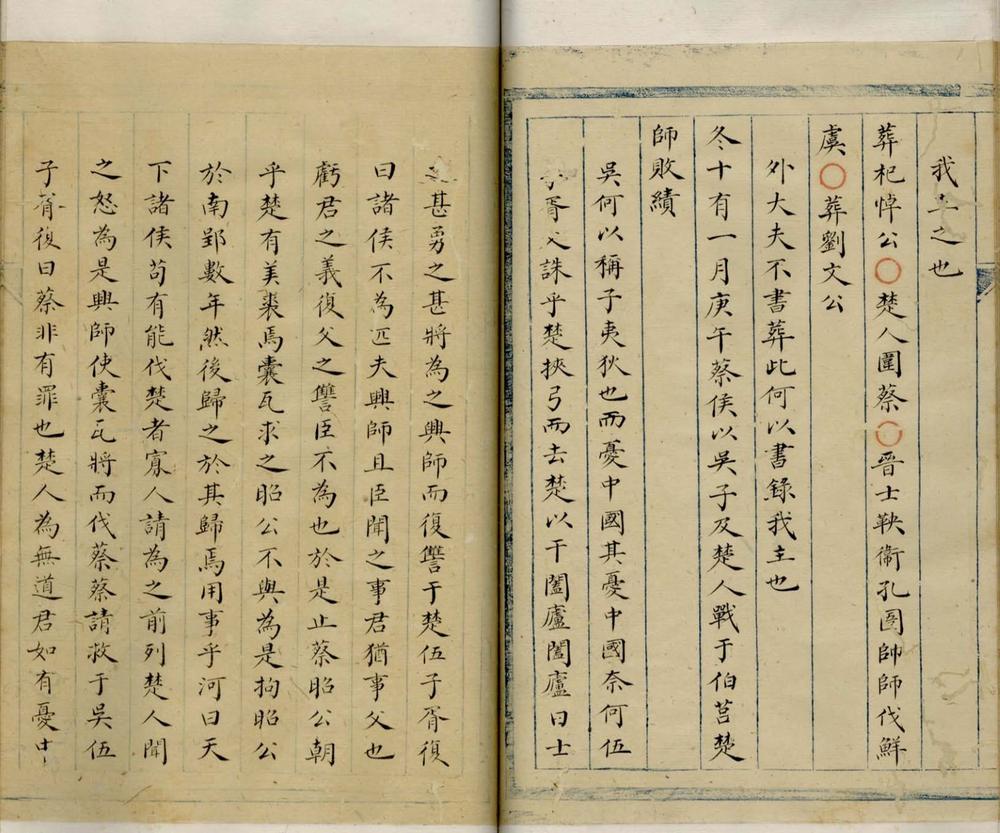 我主之也
葬杞悼公○楚人圍蔡○晉士鞅衞孔圄帥師伐鮮
虞○葬劉文公
外大夫不書葬此何以書錄我主也
冬十有一月庚午蔡侯以吳子及楚人戰于伯莒楚
師敗績
吳何以稱子夷狄也而憂中國其憂中國奈何伍
子胥父誅乎楚挾弓而去楚以干闔廬闔廬曰士
之甚勇之甚將為之興師而復讐于楚伍子胥復
曰諸侯不為匹夫興師且臣聞之事君猶事父也
虧君之義復父之讐臣不為也於是止蔡昭公朝
乎楚有美裘焉囊瓦求之昭公不與為是拘昭公
於南郢數年然後歸之於其歸焉用事乎河曰天
下諸侯苟有能伐楚者寡人請為之前列楚人聞
之怒為是興師使囊瓦將而伐蔡蔡請救于吳伍
子胥復曰蔡非有罪也楚人為無道君如有憂中